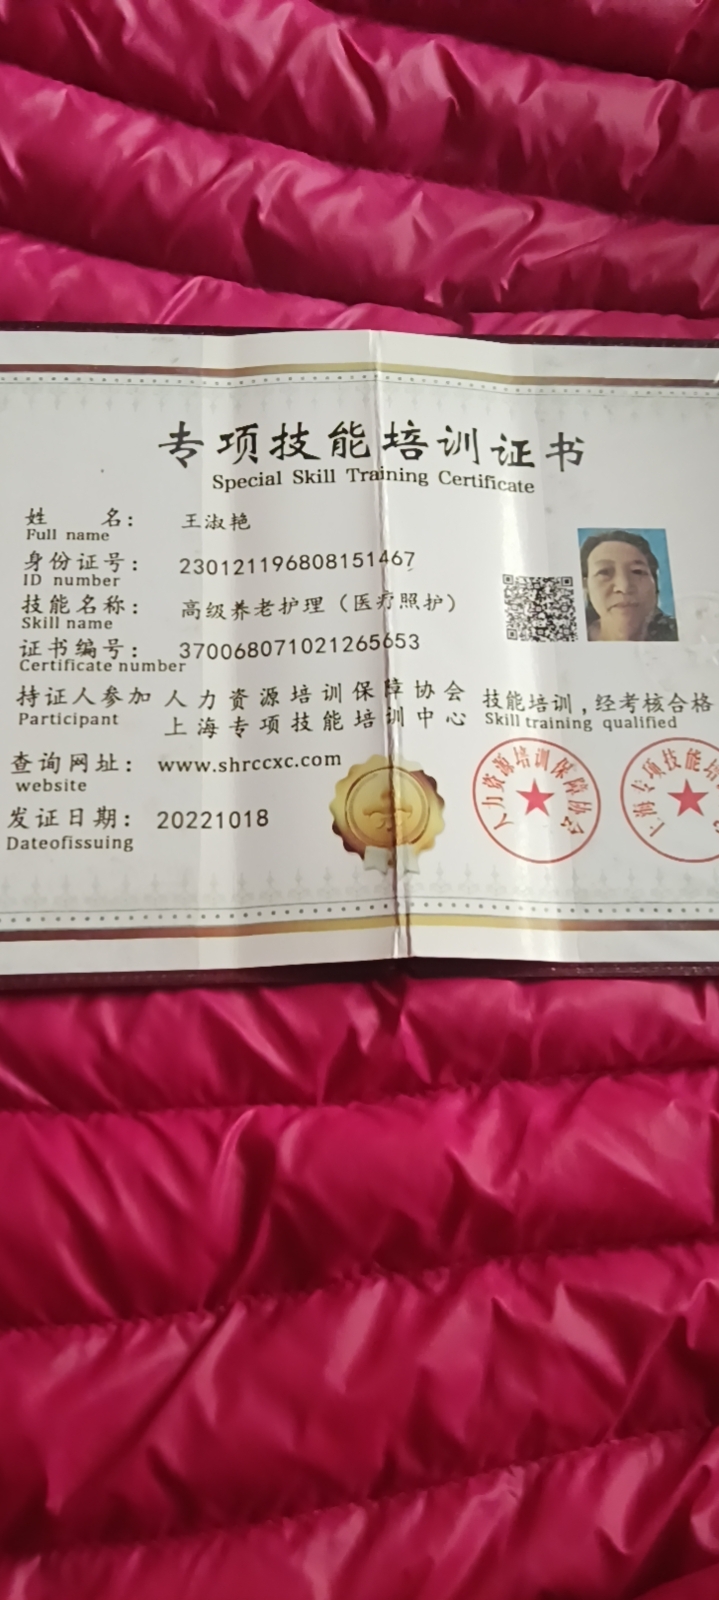 专项技能培训证书
Special Skill Training Certificate
姓 名： 王淑艳
Full name
身份证号： 230121196808151467
ID number
技能名称： 高级养老护理（医疗照护）
Skill name
证书编号： 370068071021265653
Certificate number
持证人参加 人力资源培训保障协会 技能培训，经考核合格
Participant 上海专项技能培训中心 Skill training qualified
查询网址： www.shrccxc.com
website
发证日期： 20221018
Dateofissuing
人力资源培训保障协会
上海专项技能培